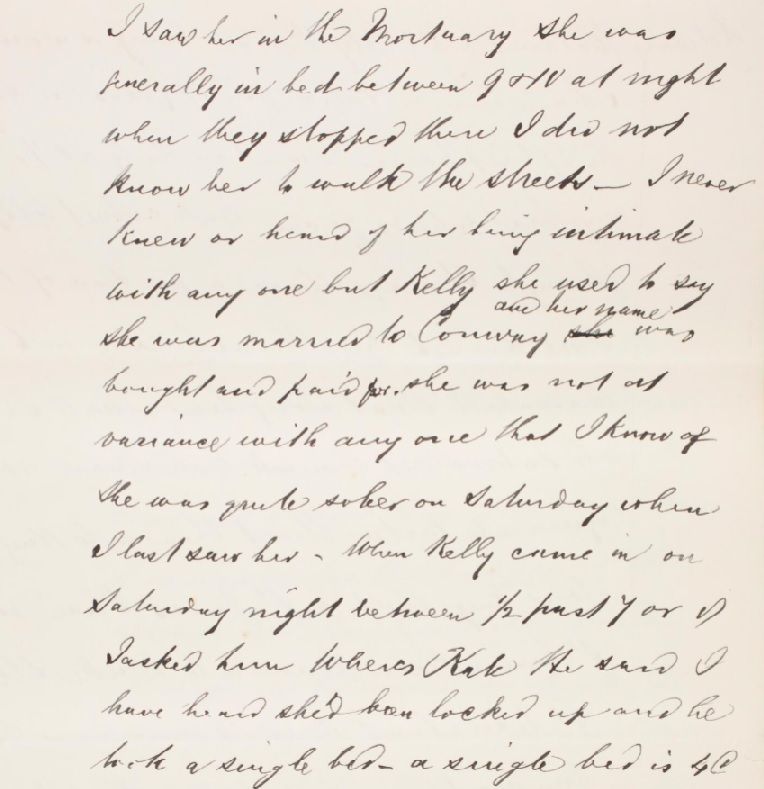 I saw her in the Mortuary she was
generally in bed between 9 & 10 at night
when they stopped there I did not
know her to walk the streets – I never
knew or heard of her being intimate
with any one but Kelly she used to say
and her name
she was married to Conway she was
bought and paid for. she was not at
variance with any one that I know of
She was quite sober on Saturday when
I last saw her - When Kelly came in on
Saturday night between ½ past 7 or 8
I asked him Wheres Kate He said I
have heard she'd been locked up and he
took a single bed – a single bed is 4d